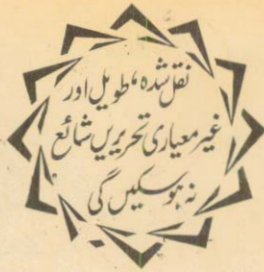 نقل شدہ، طویل اور
غیر معیاری تحریریں شائع
نہ ہوسکیں گی